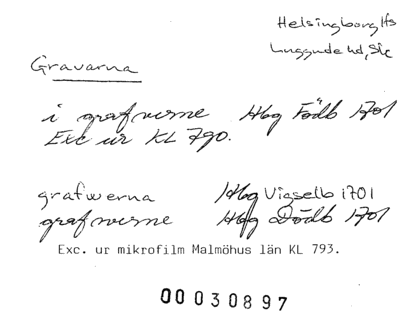 Helsingborg lfs
Luggude hd, Sk
Gravarna
i grafverne Hbg Födb 1701
Exc ur KL 790.
grafwerna Hbg Vigselb 1701
grafwerne Hbg Dödb 1701
Exc. ur mikrofilm Malmöhus län KL 793.
00030897